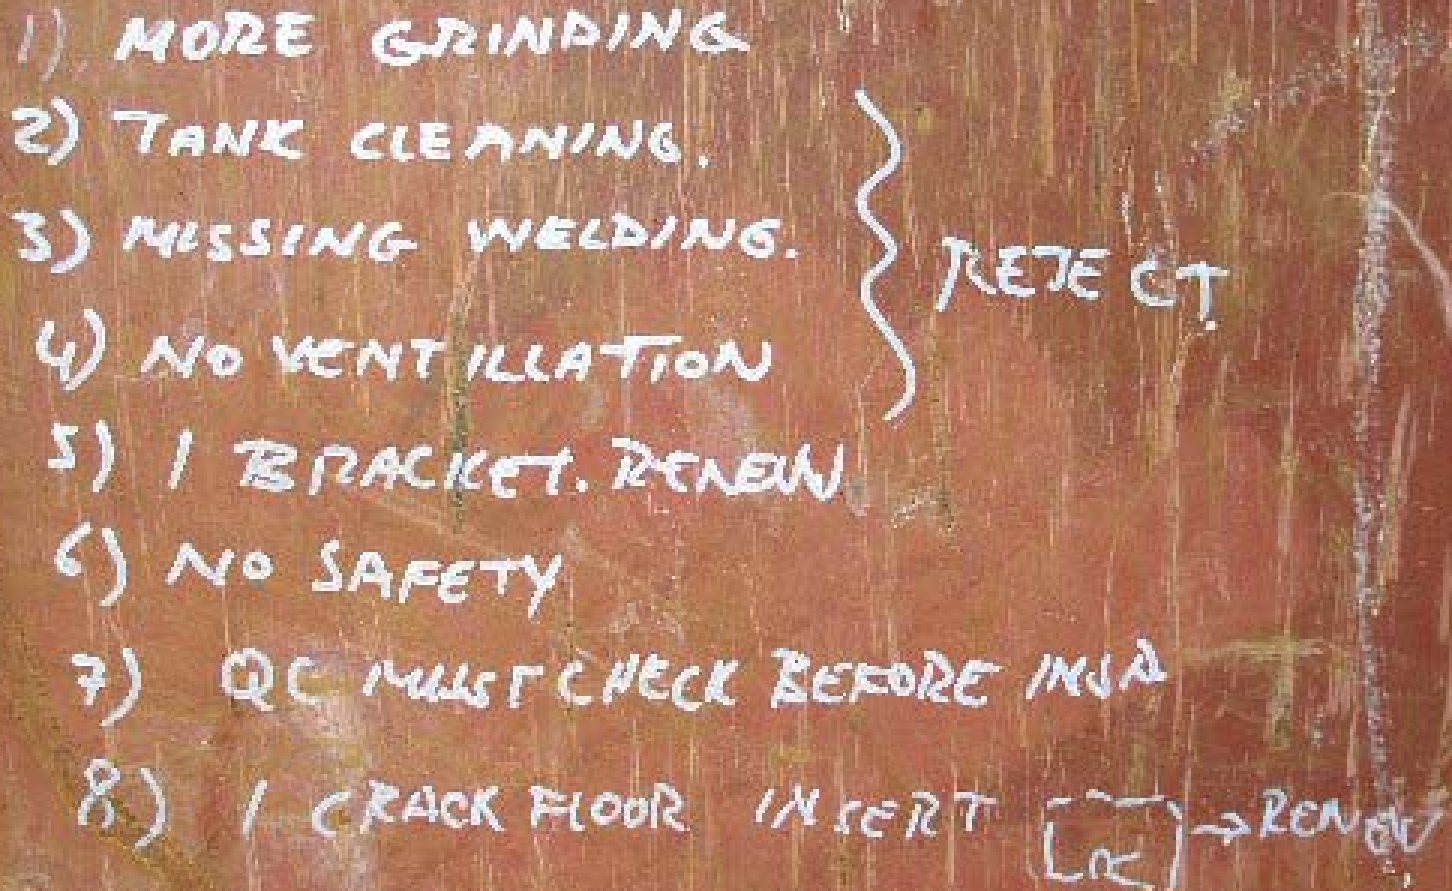 1) MORE GRINDING
2) TANK CLEANING.
3) MISSING WELDING.
REJECT
4) NO VENTILLATION
5) 1 BRACKET. RENEW
6) NO SAFETY
7) QC MUST CHECK BEFORE
8) 1 CRACK FLOOR INSERT → RENEW